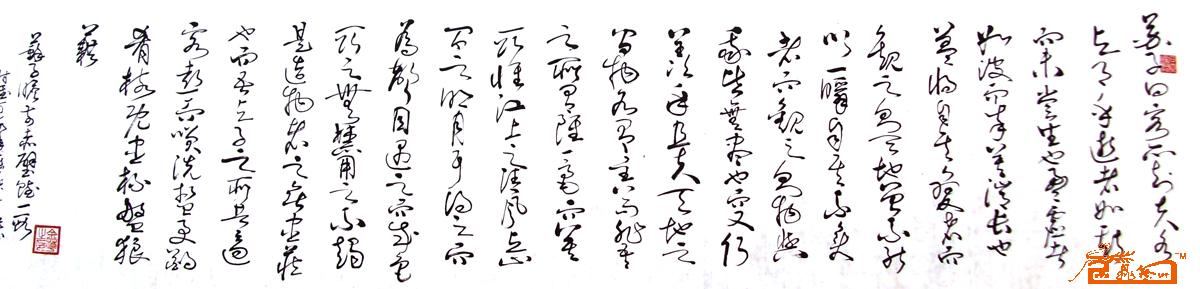 蘇子曰客亦知夫水
与月乎逝者如斯
而未嘗往也盈虚者
如彼而卒莫消长也
蓋将自其變者而
觀之则天地曾不能
以一瞬自其不變
者而觀之则物與
我皆無盡也而又何
羡乎且夫天地之
间物各有主苟非吾
之所有雖一毫而莫
取惟江上之清風与山
间之明月耳得之而
為聲目遇之而成色
取之無禁用之不竭
是造物者之無尽藏
也而吾与子之所共適
客喜而笑洗盏更酌
肴核既尽杯盤狼
藉
蘇子瞻前赤壁賦一段